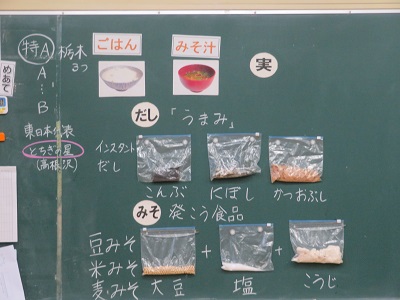 特A 栃木
3つ
A
⋮
B
めあて
東日本代表
とちぎの星
(高根沢)
ごはん
みそ汁
実
だし 「うまみ」
インスタント
だし
こんぶ にぼし かつおぶし
みそ 発こう食品
豆みそ
米みそ
麦みそ
+ +
大豆 塩 こうじ